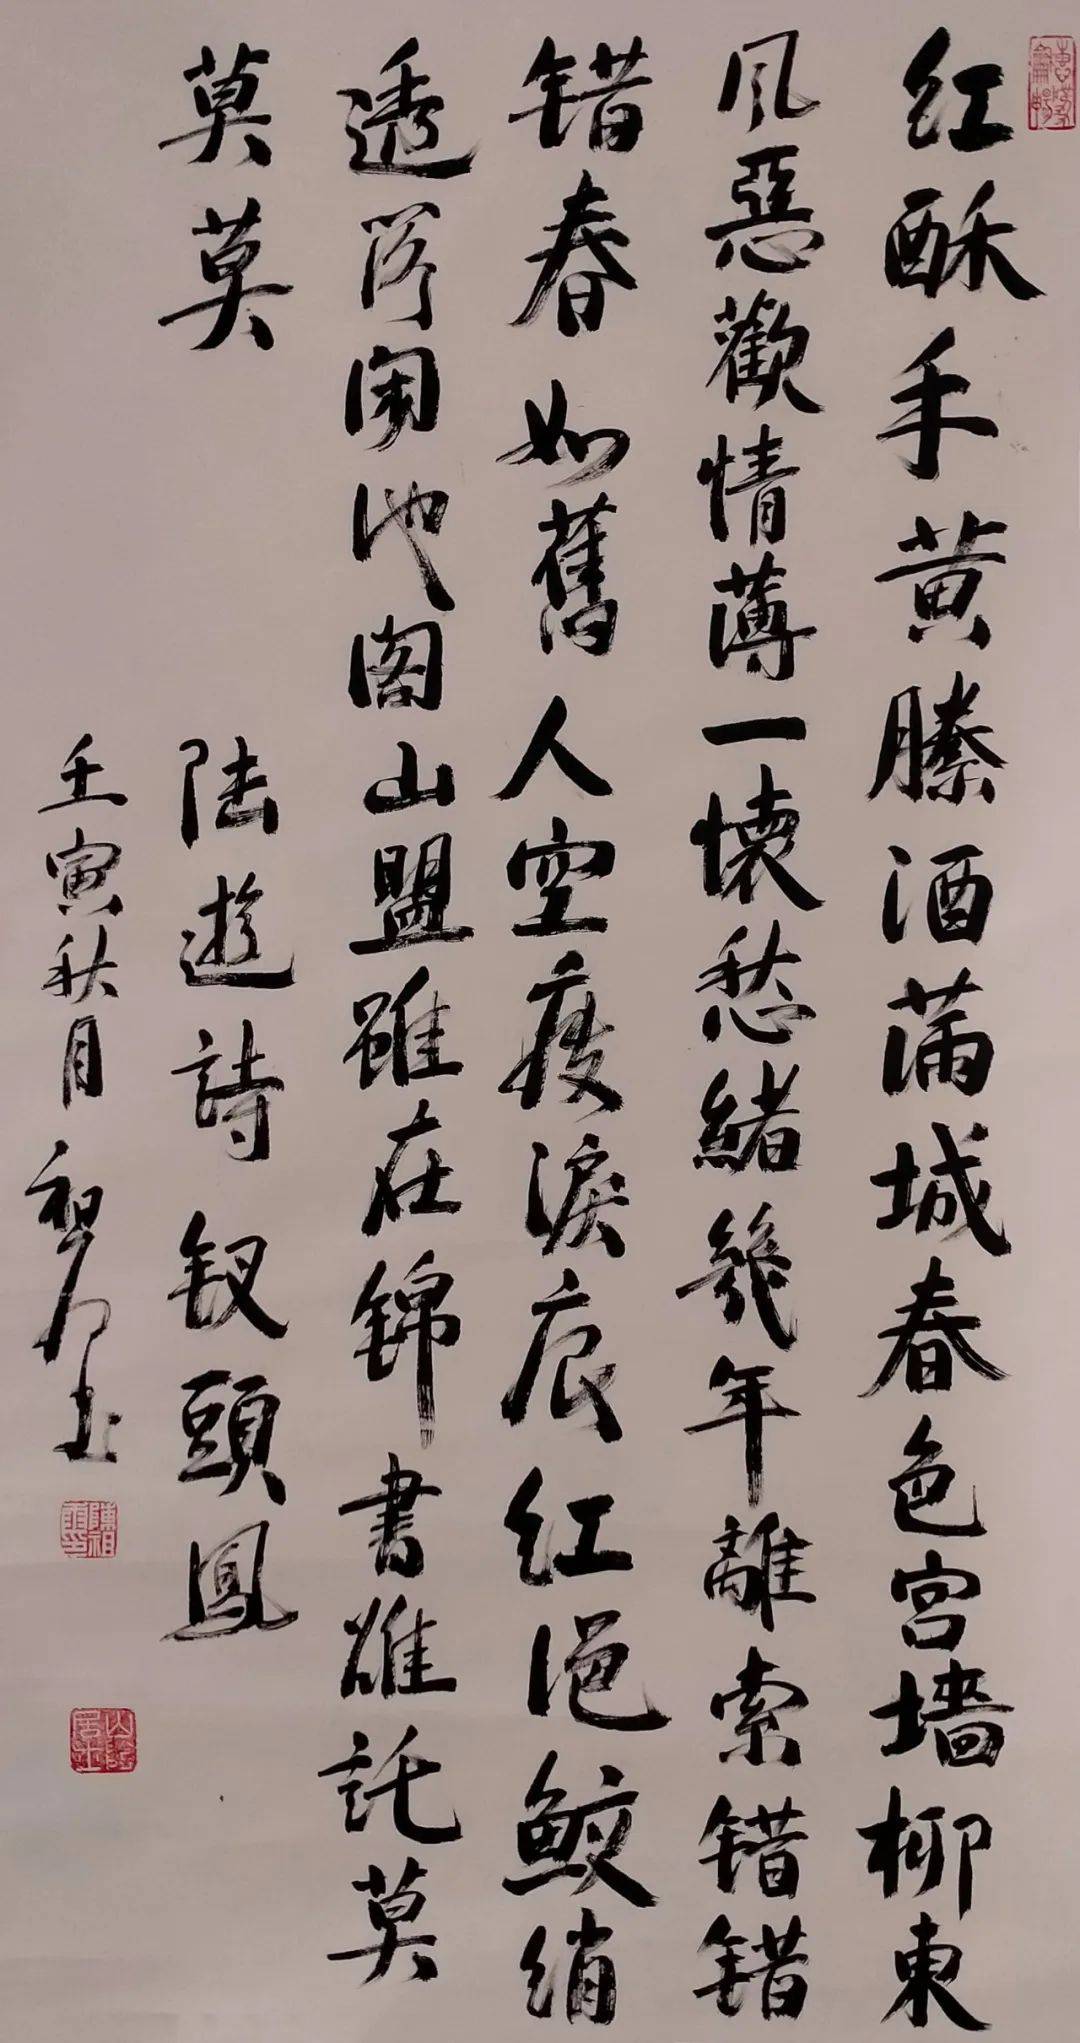 红酥手黄縢酒满城春色宫墙柳東
风惡歡情薄一懷愁緒幾年離索错错
错春如舊人空瘦淚痕红浥鲛绡
透落闲池阁山盟雖在锦書难託莫
莫莫
陆遊詩钗頭鳳
壬寅秋月祖